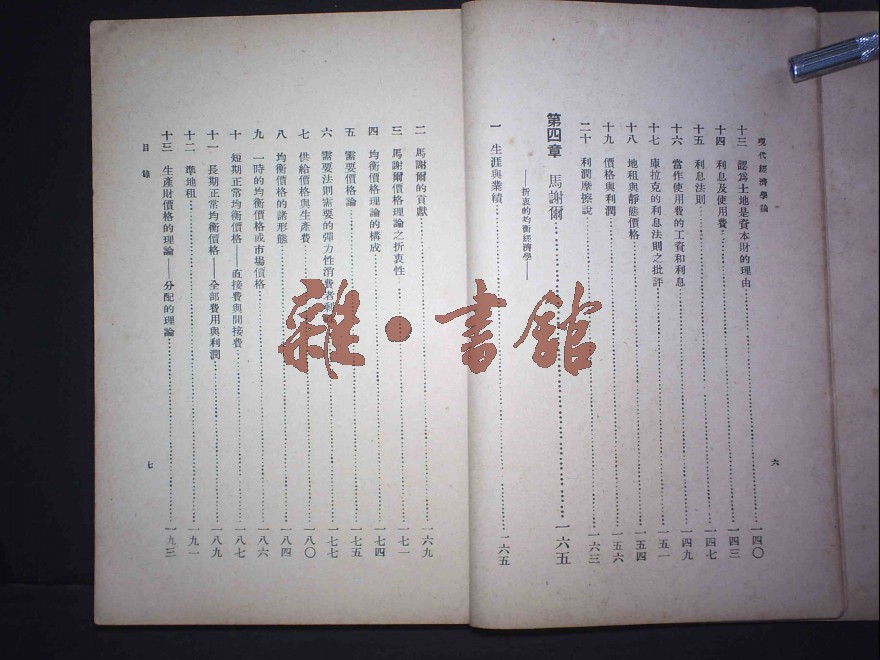 現代經濟學論
十三 認爲土地是資本財的理由 一四〇
十四 利息及使用費 一四三
十五 利息法則 一四七
十六 當作使用費的工資和利息 一四九
十七 庫拉克的利息法則之批評 一五一
十八 地租與靜態價格 一五四
十九 價格與利潤 一五六
二十 利潤摩擦說 一六三
第四章 馬謝爾 一六五
——折衷的均衡經濟學——
一 生涯與業績 一六五
六
二 馬謝爾的貢獻 一六九
三 馬謝爾價格理論之折衷性 一七一
四 均衡價格理論的構成 一七四
五 需要價格論 一七五
六 需要法則需要的彈力性消費者剩 一七七
七 供給價格與生產費 一八〇
八 均衡價格的諸形態 一八四
九 一時的均衡價格或市場價格 一八六
十 短期正常均衡價格——直接費與間接費 一八七
十一 長期正常均衡價格——全部費用與利潤 一八九
十二 準地租 一九一
十三 生產財價格的理論——分配的理論 一九三
目錄
七
雜·書館